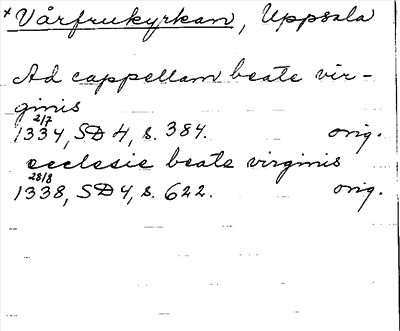 × Vårfrukyrkan, Uppsala
Ad cappellam beate vir-
ginis
1334 2/7, SD 4, s. 384. orig.
ecclesie beate virginis
1338 28/8, SD 4, s. 622. orig.